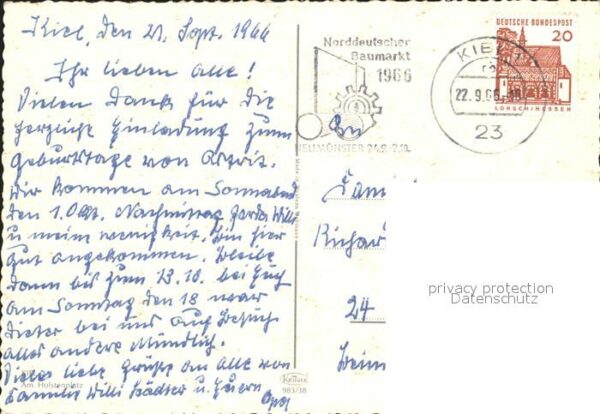 Kiel, den 21. Sept. 1966
Ihr lieben alle!
Vielen Dank für die
herzliche Einladung zum
Geburtstage von Astrit.
Wir kommen am Sonnabend
den 1. Okt. Nachmittag, Gerda, Willi
u meine wenigkeit. Bin hier
gut angekommen. Bleibe
dann bis zum 13.10. bei Euch
am Sonntag den 18 war
Dieter bei uns auf Besuch
alles andere Mündlich.
Viele liebe Grüße an alle von
Familie Willi Städter u. Euern
Opa
Am Holstenplatz
Norddeutscher
Baumarkt
1966
NEUMÜNSTER 24.9.-2.10.
KIEL 1
22.9.66
23
DEUTSCHE BUNDESPOST
20
LORSCH/HESSEN
An
Fam
Richar
24
Heim
privacy protection
Datenschutz
Krüger
983/38